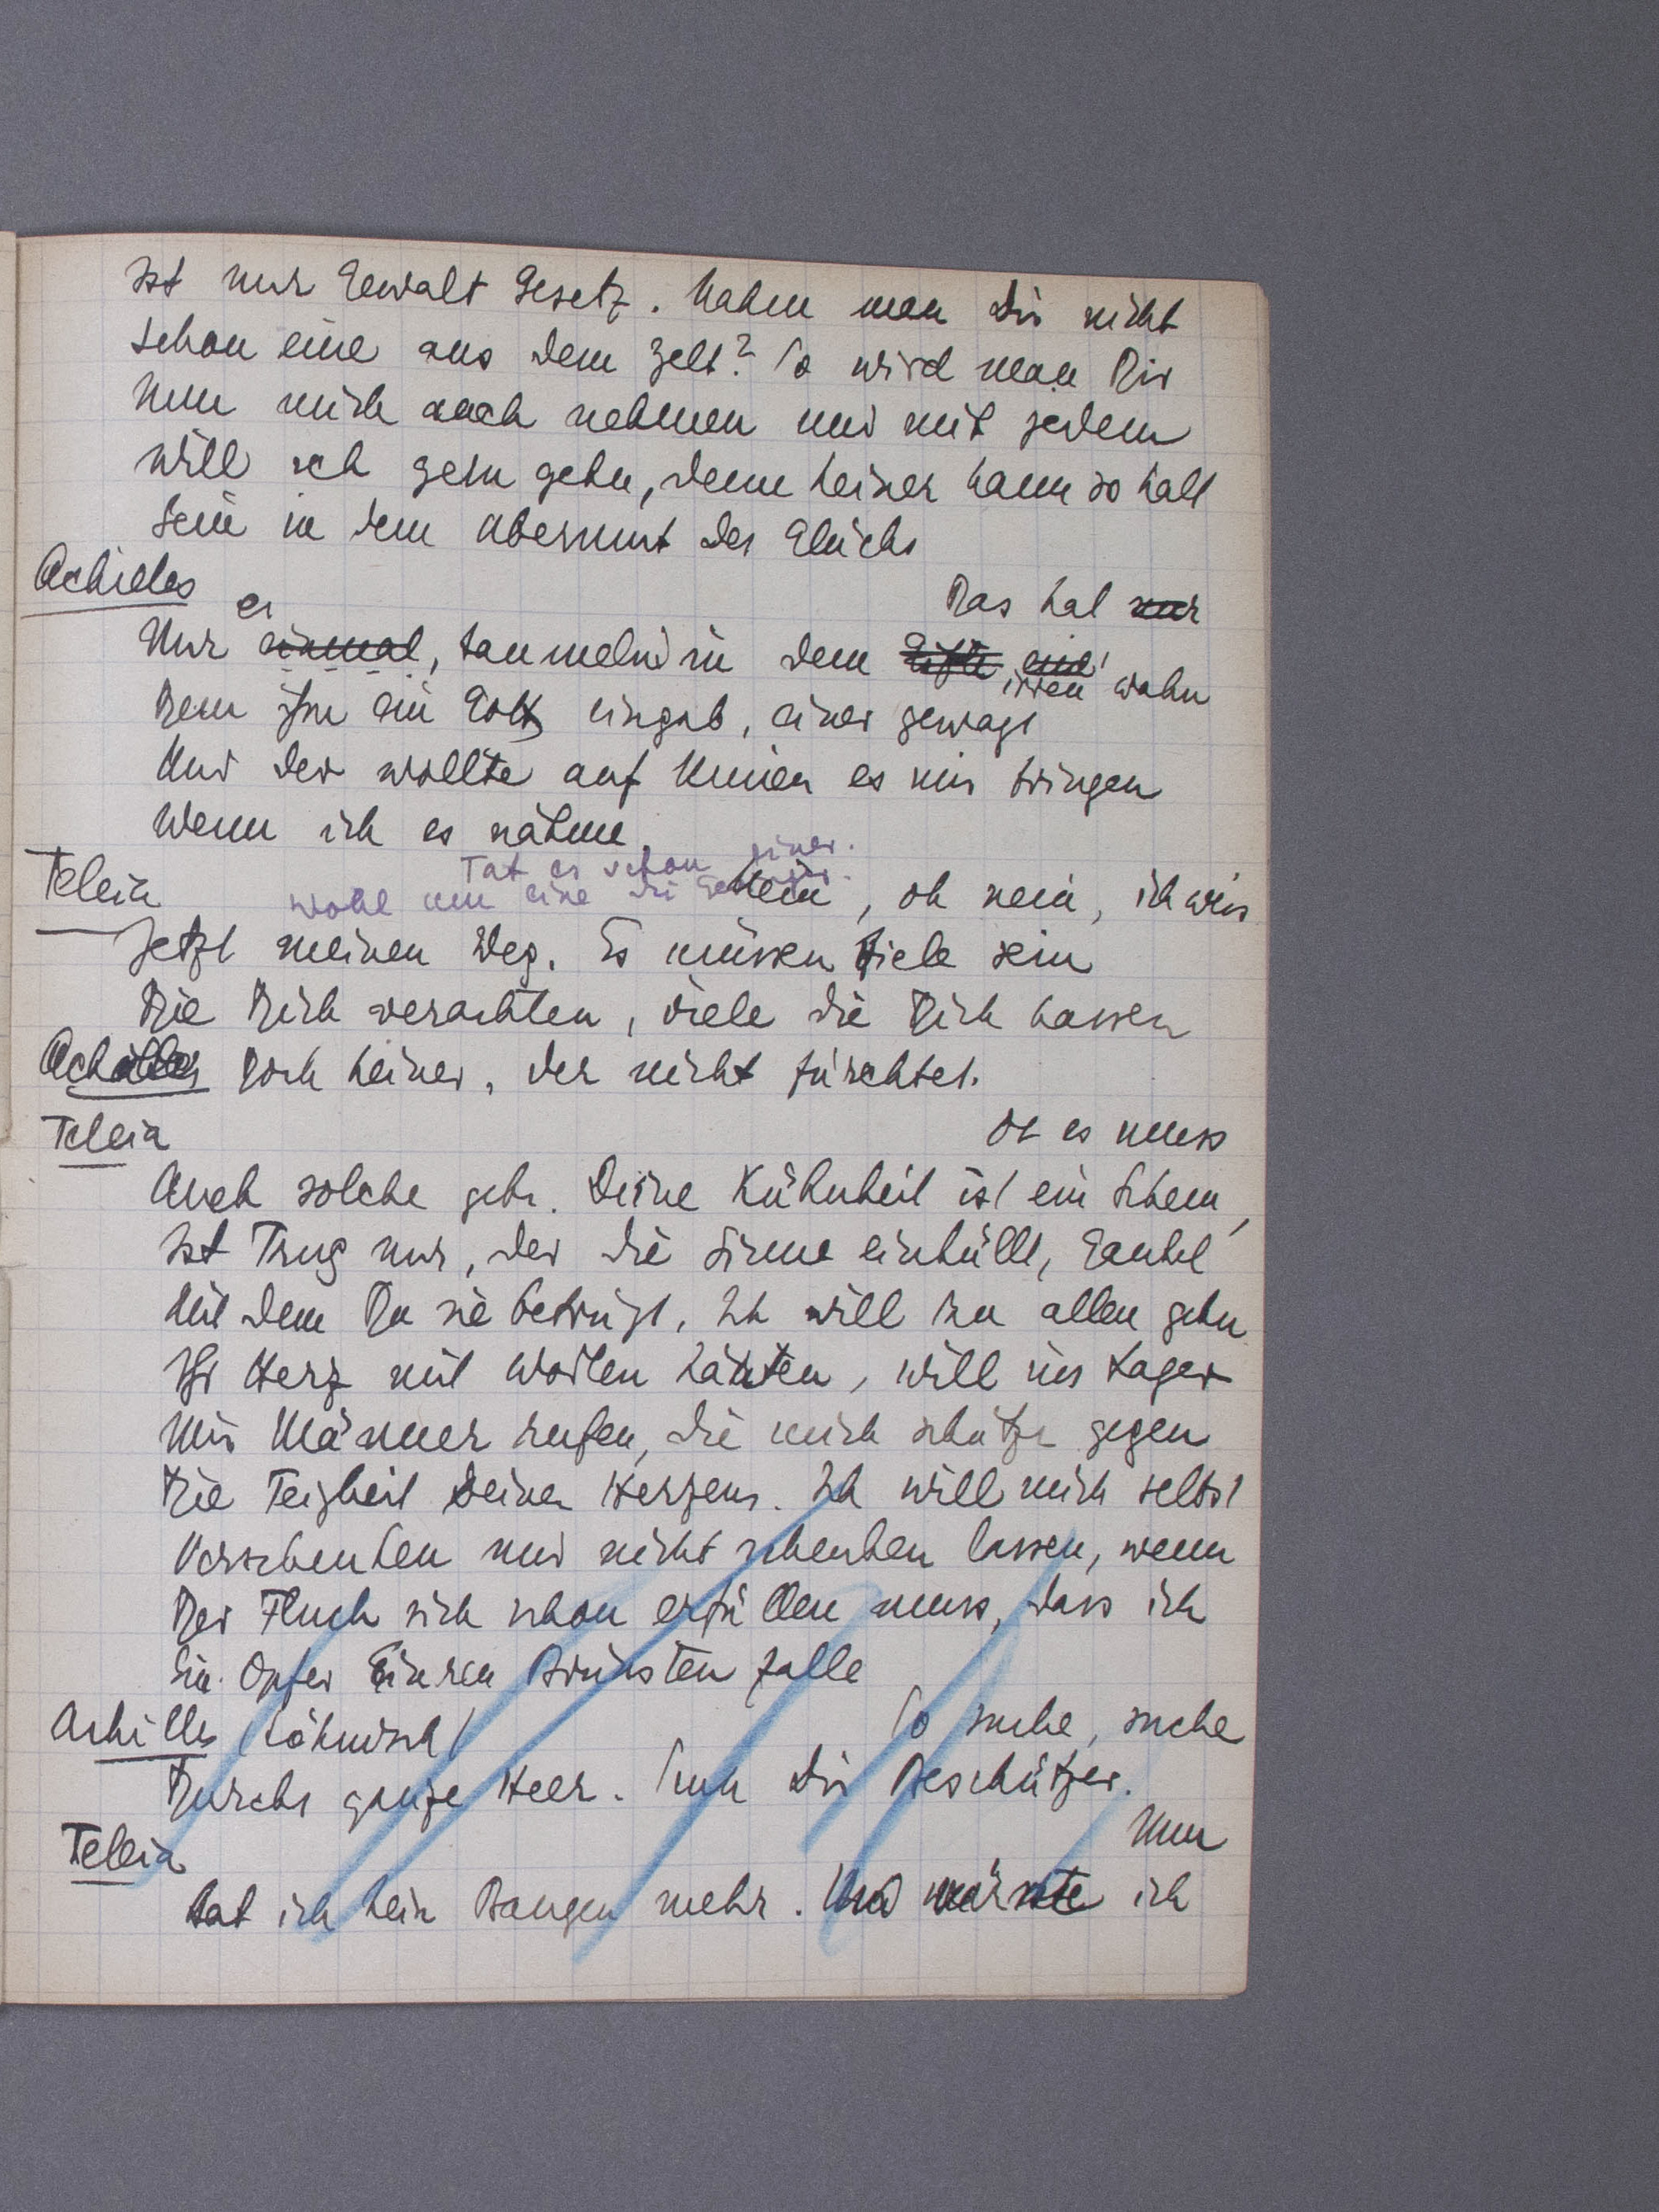 Ist nur Gewalt Gesetz. Nahm man dir nicht
schon eine aus dem Zelt? So wird man Dir
Nun mich auch nehmen und mit jedem
will ich gern gehn, denn keiner kann so kalt
sein in dem Übermut des Glücks
Achilles
Das hat nur
er
Nur einmal, taumelnd in dem
irren Wahn
Dem ihn ein Gott eingab, einer gewagt
Und der wollte auf Knieen es mir bringen
Wenn ich es nähme.
Tat es schon einer.
Wohl um eine die
Teleia
Nein, oh nein, ich weiss
Jetzt meinen Weg. Es müssen Viele sein
Die Dich verachten, viele die Dich hassen
Achilles Doch keiner, der nicht fürchtet.
Teleia
Oh es muss
Auch solche geben. Deine Kühnheit ist ein Schein,
Ist Trug nur, der die Sinne einhüllt, Gaukel
Mit dem Du sie betrügst. Ich will zu allen gehn
Ihr Herz mit Worten härten, will ins Lager
Mir Männer rufen, die mich schützen gegen
Die Feigheit Deines Herzens. Ich will mich selbst
Verschenken und nicht schenken lassen, wenn
Der Fluch sich schon erfüllen muss, dass ich
Ein Opfer Euren Brünsten falle
Achilles (höhnisch)
So suche, suche
Durchs ganze Heer. Such Dir Beschützer.
Teleia
Nun
hab ich kein Bangen mehr. Und müsste ich